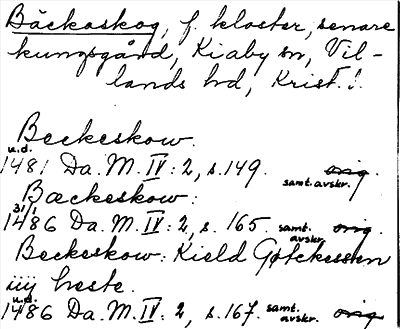 Bäckaskog, f. kloster, senare
kungsgård, Kiaby sn, Vil-
lands hd, Krist. l.
Beckeskow.
u.d.
1481 Da. M. IV: 2, s. 149. samt. avskr. orig.
Bæckeskow:
31/1
1486 Da. M. IV: 2, s. 165 samt. avskr. orig.
Beckeskow: Kield Gøtckessen
iiij heste.
u.d.
1486 Da. M. IV: 2, s. 167. samt. avskr. orig